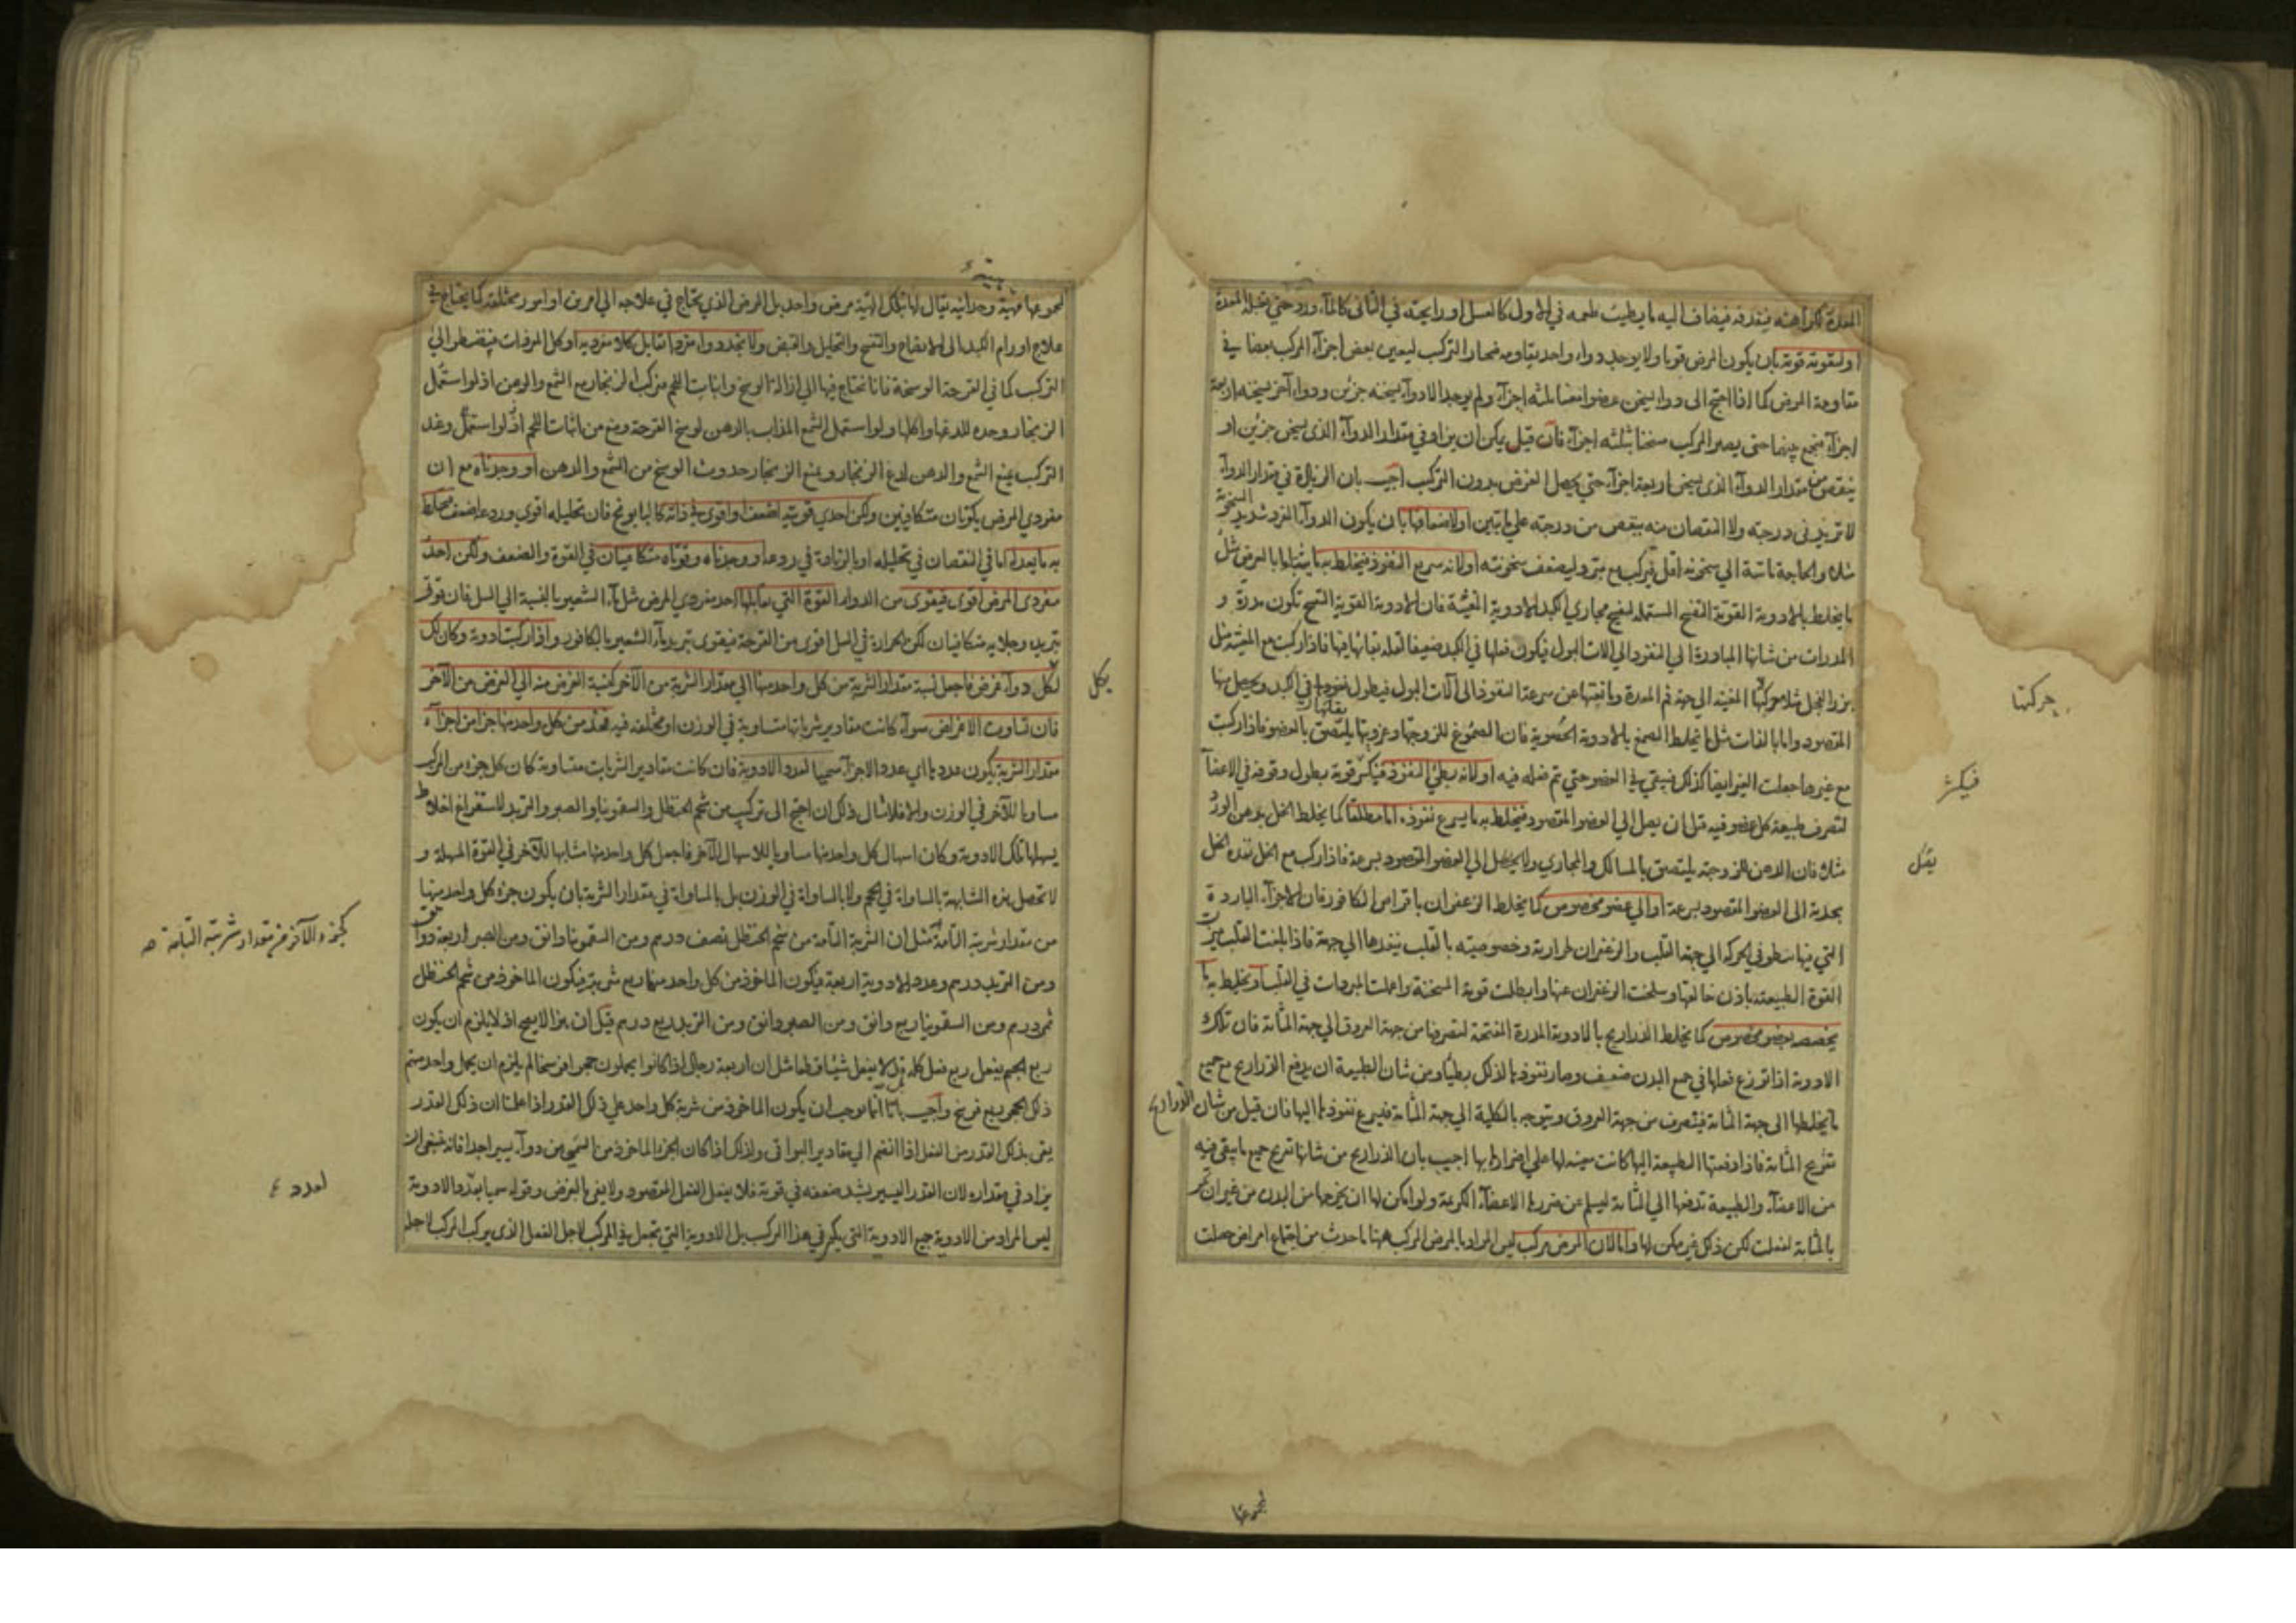 المعدة لكراهته فيقذفه فيضاف اليه ما يطيب طعمه في الاول كالعسل او رايحته في الثاني كالماء ورد حتى تقبله المعدة
او لتقوية قوته بان يكون المرض قويا ولا يوجد دواء واحد يقاومه فيحتاج الى التركيب ليعين بعض اجزاء المركب بعضا في
مقاومة المرض كما اذا احتيج الى دواء يسخن عضوا مثلا بثلثة اجزاء ولم يوجد الا دواء يسخنه جزئين ودواء آخر يسخنه اربعة
اجزاء فنجمع بينهما حتى يصير المركب مسخنا بثلثة اجزاء فان قيل يمكن ان يزاد في مقدار الدواء الذي يسخن جزئين او
ينقص من مقدار الدواء الذي يسخن اربعة اجزاء حتى يحصل الغرض بدون التركيب اجيب بان الزيادة في مقدار الدواء
لا تزيد في درجته ولا النقصان منه ينقص من درجته على ما تبين او لاضعافها بان يكون الدواء المفرد شديد السخونة
مثلا والحاجة ماسة الى سخونة اقل فيركب مع مبرد ليضعف سخونته او لانه سريع النفوذ فيخلط به ما يثبطه اما بالعرض مثل
ما يخلط بالادوية القوية التفتيح المستعملة لتفتيح مجاري الكبد الادوية المقيئة فان الادوية القوية التفتيح تكون مدرة و
المدرات من شانها المبادرة الى النفوذ الى الات البول فيكون فعلها في الكبد ضعيفا لقلة بقائها فيها فاذا ركبت مع المقيئة مثل
بزر الفجل مثلا حركتها المقيئة الى جهة فم المعدة ومانعتها عن سرعة النفوذ الى آلات البول فيطول نفوذها في الكبد ويحصل منها
المقصود واما بالذات مثل ما يخلط الصمغ بالادوية فان الصموغ للزوجتها وغرويتها يلتصق بالعضو فاذا ركبت
مع غيرها جعلت الغير ايضا كذلك فيبقى في العضو حتى يتم فعله فيه او لانه بطئ النفوذ فيكسر قوته بطول وقوفه في الاعضاء
لتصرف طبيعة كل عضو فيه قبل ان يصل الى العضو المقصود فيخلط به ما يسرع نفوذه اما مطلقا كما يخلط الخل بدهن الورد
مثلا فان الدهن للزوجته يلتصق بالمسالك والمجاري ولا يصل الى العضو المقصود بسرعة فاذا ركب مع الخل نفذه الخل
بحدته الى العضو المقصود بسرعة او الى عضو مخصوص كما يخلط الزعفران باقراص الكافور فان الاجزاء الباردة
التي فيها بطؤ في الحركة الى جهة القلب والزعفران لحرارته وخصوصيته بالقلب ينفذها الى جهته فاذا بلغت القلب ميزت
القوة الطبيعية باذن خالقها وسلخت الزعفران عنها وابطلت قوته المسخنة واعملت المبردات في القلب او يخلط به ما
يخصصه بعضو مخصوص كما يخلط الذراريح بالادوية المدرة المفتحة لتصرفها من جهة العروق الى جهة المثانة فان تلك
الادوية اذا توزع فعلها في جميع البدن ضعيف وصار نفوذها لذلك بطيئا ومن شان الطبيعة ان يدفع الذراريح مع جميع
ما يخلطها الى جهة المثانة فينصرف من جهة العروق ويتوجه بالكلية الى جهة المثانة فيسرع نفوذها اليها فان قيل من شان الذراريح
تقريح المثانة فاذا دفعتها الطبيعة اليها كانت معينة لها على اضرارها بها اجيب بان الذراريح من شانها تقريح جميع ما يبقى فيه
من الاعضاء والطبيعة تدفعها الى المثانة ليسلم عن ضررها الاعضاء الكريمة ولو امكن لها ان يخرجها من البدن من غير ان تمر
بالمثانة لفعلت لكن ذلك غير ممكن لها واما لان المرض مركب ليس المراد بالمرض المركب ههنا ما حدث من اجتماع امراض حصلت
حركتها
فيكسر
لمجموعها
لمجموعها هيئة وحدانية يقال لها بتلك الهيئة مرض واحد بل المرض الذي يحتاج في علاجه الى امرين او امور مختلفة كما يحتاج في
علاج اورام الكبد الى الانضاج والتفتيح والتحليل والقبض ولا نجد دواء مفردا تقابل كلا مفرديه او كل المفردات فنضطر الى
التركيب كما في القرحة الوسخة فانا نحتاج فيها الى ازالة الوسخ وانبات اللحم فنركب الزنجار مع الشمع والدهن اذ لو استعمل
الزنجار وحده للذعها واكلها ولو استعمل الشمع المذاب بالدهن لوسخ القرحة ومنع من انبات اللحم وعند
التركيب يمنع الشمع والدهن لذع الزنجار ويمنع الزنجار حدوث الوسخ من الشمع والدهن او وجدناه مع ان
مفردي المرض يكونان متكافئين ولكن احدي قوتيه اضعف او اقوى في ذاته كالبابونج فان تحليله اقوى وردعه اضعف فنخلط
به ما يعدله اما في النقصان في تحليله او بالزيادة في ردعه او وجدناه وقوتاه متكافيتان في القوة والضعف ولكن احد
مفردي المرض اقوى فيقوى من الدواء القوة التي تقابلها احد مفردي المرض مثل ماء الشعير بالنسبة الى السل فان قوتي
تبريده وجلائه متكافيتان لكن الحرارة في السل اقوى من القرحة فيقوى تبريد ماء الشعير بالكافور واذا ركبت ادوية وكان لك
لكل دواء غرض فاجعل نسبة مقدار الشربة من كل واحد منها الى مقدار الشربة من الآخر كنسبة الغرض منه الى الغرض من الآخر
فان تساوت الاغراض سواء كانت مقادير شرباتها متساوية في الوزن او مختلفة فيه فخذ من كل واحد منها جزا من اجزاء
مقدار الشربة يكون عدد ها اي عدد الاجزاء سميا لعدد الادوية فان كانت مقادير الشربات متساوية كان كل جزء من المركب
مساويا للآخر في الوزن والا فلا مثال ذلك ان احتيج الى تركيب من شحم الحنظل والسقمونيا والصبر والتربد لاستفراغ اخلاط
يسهلها تلك الادوية وكان اسهال كل واحد منها مساويا لاسهال الآخر فاجعل كل واحد منها مشابها للآخر في القوة المسهلة و
لا تحصل هذه المشابهة بالمساواة في الحجم ولا بالمساواة في الوزن بل بالمساواة في مقدار الشربة بان يكون جزء كل واحد منها
من مقدار شربته التامة مثل ان الشربة التامة من شحم الحنظل نصف درهم ومن السقمونيا دانق ومن الصبر اربعة دوانق
ومن التربد درهم وعدد الادوية اربعة فيكون الماخوذ من كل واحد منها ربع شربته فيكون الماخوذ من شحم الحنظل
ثمن درهم ومن السقمونيا ربع دانق ومن الصبر دانق ومن التربد ربع درهم قيل ان هذا لا يصح اذ لا يلزم ان يكون
ربع الحجم يفعل ربع فعل كله بل قد لا يفعل شيئا قط مثل ان اربعة رجال اذا كانوا يحملون حجرا فرسخا لم يلزم ان يحمل واحد منهم
ذلك الحجر ربع فرسخ واجيب بانا انما نوجب ان يكون الماخوذ من شربة كل واحد على ذلك القدر اذا علمنا ان ذلك القدر
يفي بذلك القدر من الفعل اذا انضم الى مقادير البواقي ولذلك اذا كان الجزء الماخوذ من السمي من دواء يسيرا جدا فانه ينبغي ان
يزاد في مقداره لان القدر اليسير يشتد ضعفه في قوته فلا يفعل الفعل المقصود ولا يفي بالغرض وقوله سميا بعدد الادوية
ليس المراد من الادوية جميع الادوية التي يكون في هذا المركب بل الادوية التي تجعل في المركب لاجل الفعل الذي يركب المركب لاجله
بكل
كجزء الآخر من مقدار شربته التامة صح
لعدد